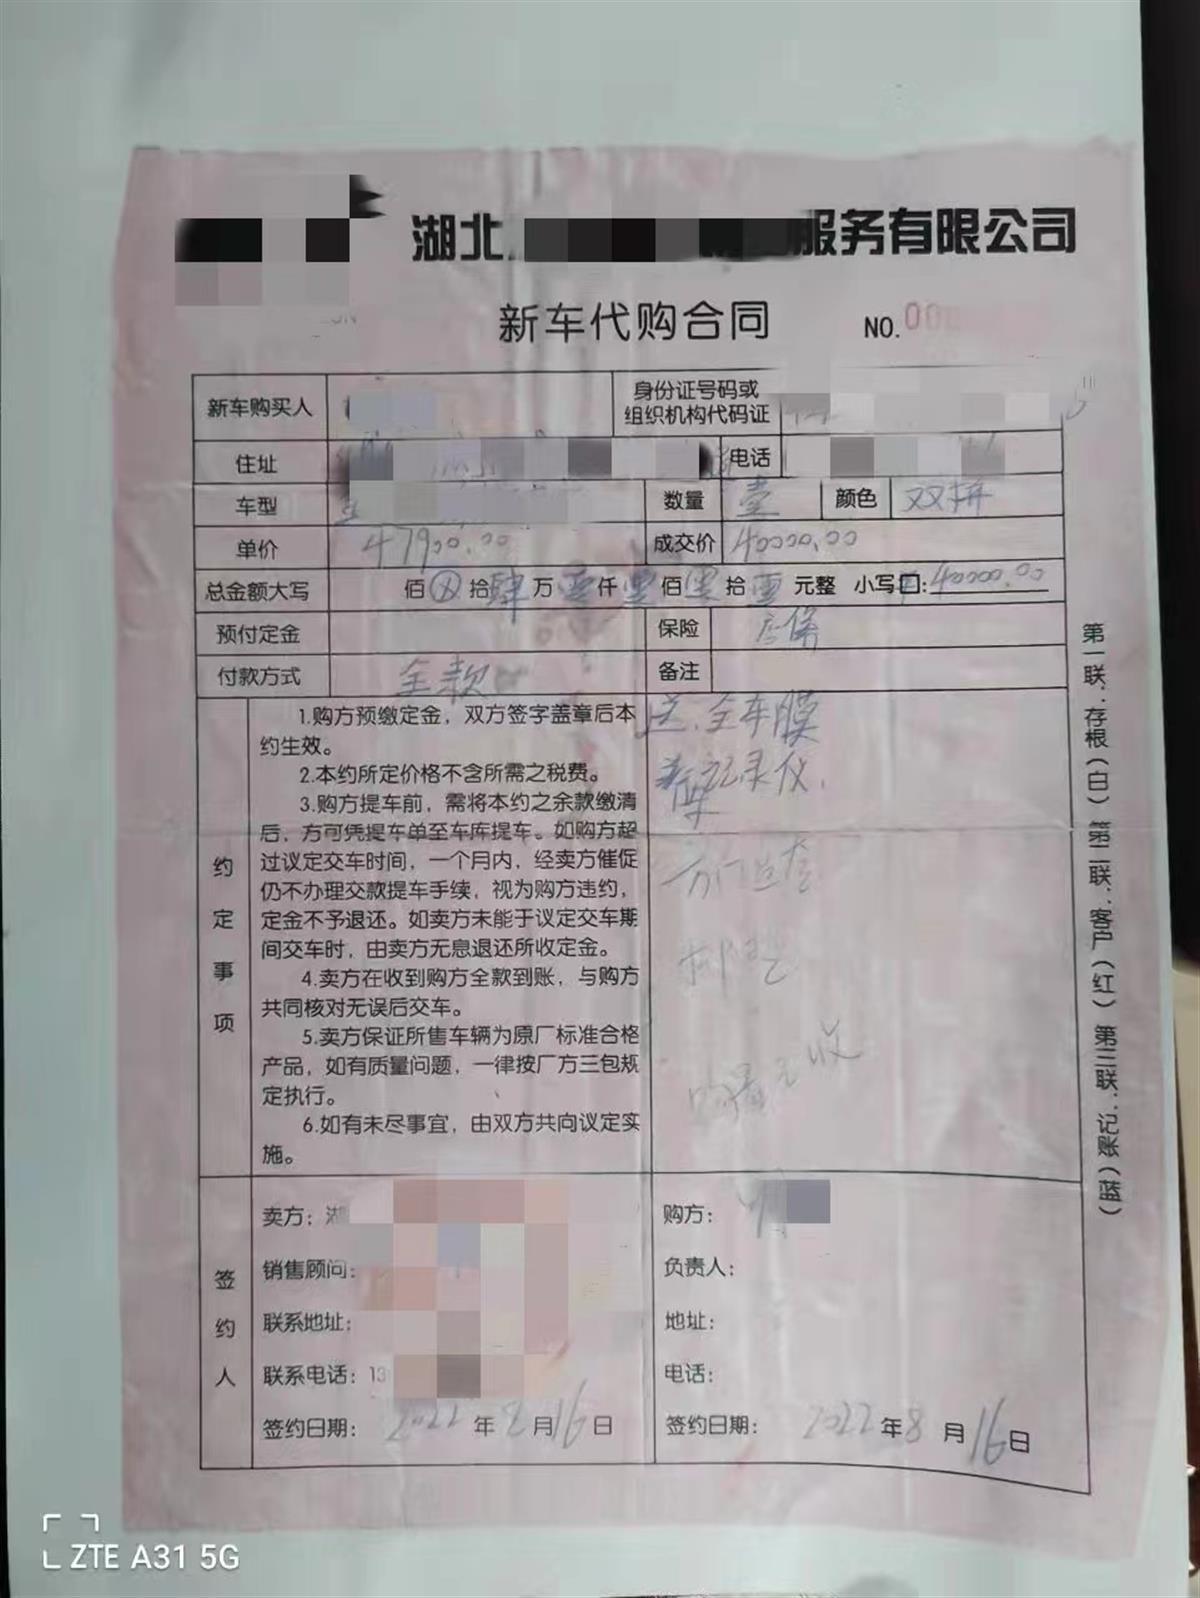 湖北 服务有限公司
新车代购合同 NO.00
新车购买人 身份证号码或
组织机构代码证
住址 电话
车型 数量 壹 颜色 双拼
单价 47900.00 成交价 40000.00
总金额大写 佰 ⊗ 拾 肆 万 零 仟 零 佰 零 拾 零 元整 小写 : 40000.00
预付定金 保险 店保
付款方式 全款 备注
约定事项
1.购方预缴定金，双方签字盖章后本
约生效。
2.本约所定价格不含所需之税费。
3.购方提车前，需将本约之余款缴清
后，方可凭提车单至车库提车。如购方超
过议定交车时间，一个月内，经卖方催促
仍不办理交款提车手续，视为购方违约，
定金不予退还。如卖方未能于议定交车期
间交车时，由卖方无息退还所收定金。
4.卖方在收到购方全款到账，与购方
共同核对无误后交车。
5.卖方保证所售车辆为原厂标准合格
产品，如有质量问题，一律按厂方三包规
定执行。
6.如有未尽事宜，由双方共向议定实
施。
送.全车膜
记录仪.
签约人
卖方：湖
销售顾问：
联系地址：
联系电话：13
签约日期： 2022 年 8 月 16 日
购方：
负责人：
地址：
电话：
签约日期： 2022 年 8 月 16 日
第一联：存根（白）第二联：客户（红）第三联：记账（蓝）
ZTE A31 5G